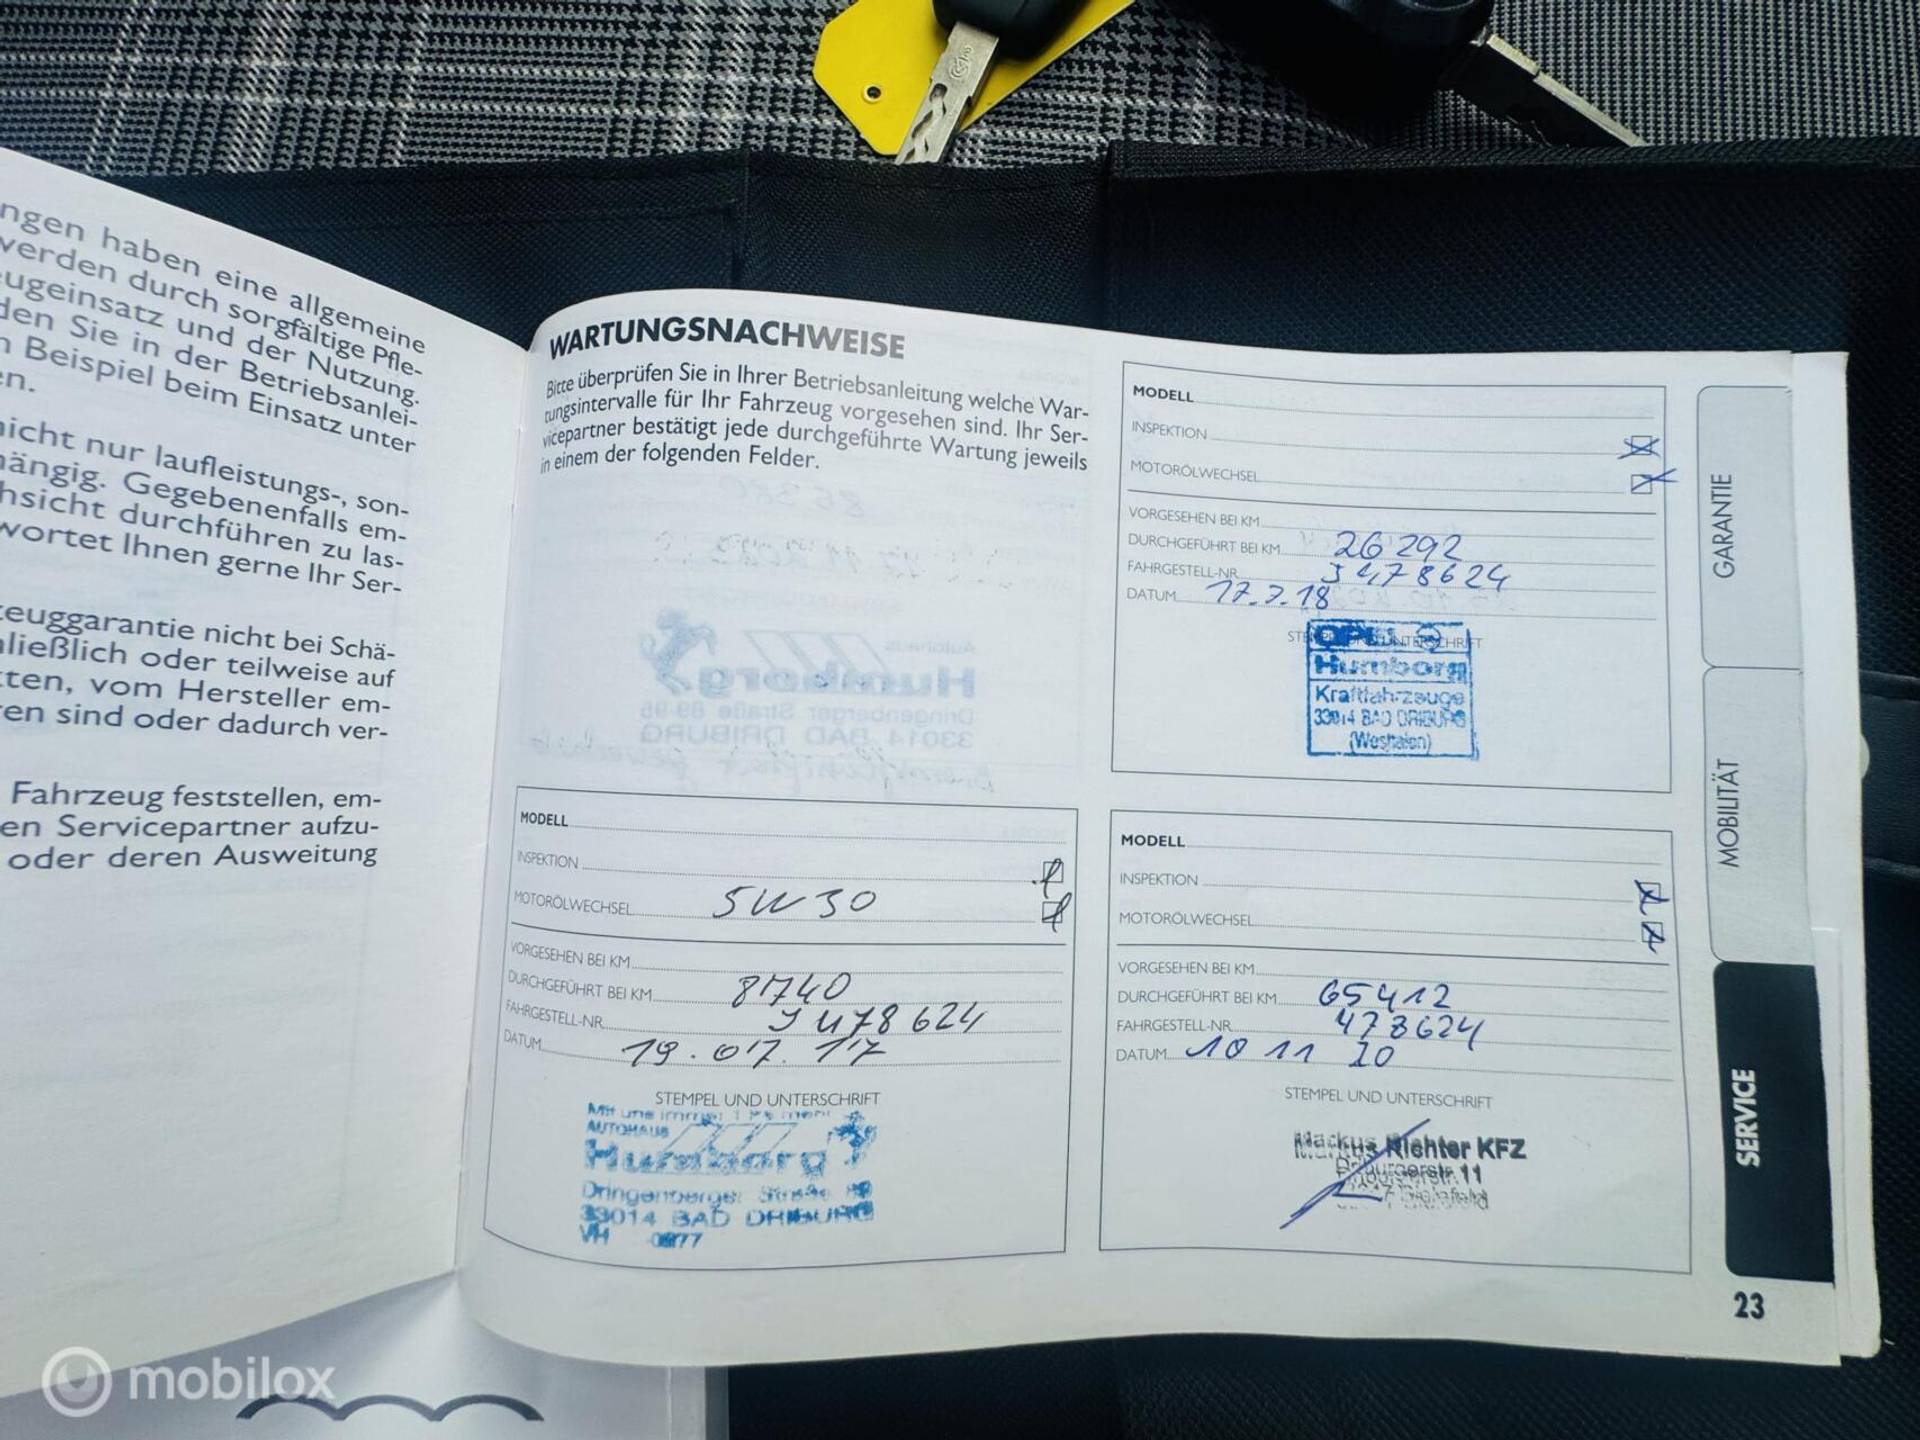 ngen haben eine allgemeine
werden durch sorgfältige Pfle-
eugeinsatz und der Nutzung.
den Sie in der Betriebsanlei-
n Beispiel beim Einsatz unter
en.
nicht nur laufleistungs-, son-
hängig. Gegebenenfalls em-
hsicht durchführen zu las-
wortet Ihnen gerne Ihr Ser-
zeuggarantie nicht bei Schä-
hließlich oder teilweise auf
tten, vom Hersteller em-
ren sind oder dadurch ver-
Fahrzeug feststellen, em-
en Servicepartner aufzu-
oder deren Ausweitung
WARTUNGSNACHWEISE
Bitte überprüfen Sie in Ihrer Betriebsanleitung welche War-
tungsintervalle für Ihr Fahrzeug vorgesehen sind. Ihr Ser-
vicepartner bestätigt jede durchgeführte Wartung jeweils
in einem der folgenden Felder.
MODELL
INSPEKTION
MOTORÖLWECHSEL 5W30
VORGESEHEN BEI KM
DURCHGEFÜHRT BEI KM 8740
FAHRGESTELL-NR. J478624
DATUM 19.07.17
STEMPEL UND UNTERSCHRIFT
Mit uns immer 1 PS mehr
AUTOHAUS
Humborg
Dringenberger Straße
33014 BAD DRIBURG
VH
MODELL
INSPEKTION
MOTORÖLWECHSEL
VORGESEHEN BEI KM
DURCHGEFÜHRT BEI KM 26292
FAHRGESTELL-NR. J478624
DATUM 17.7.18
STEMPEL UND UNTERSCHRIFT
OPEL
Humborg
Kraftfahrzeuge
33014 BAD DRIBURG
(Westfalen)
MODELL
INSPEKTION
MOTORÖLWECHSEL
VORGESEHEN BEI KM
DURCHGEFÜHRT BEI KM 65412
FAHRGESTELL-NR. 478624
DATUM 10 11 20
STEMPEL UND UNTERSCHRIFT
Markus Richter KFZ
Driburgerstr. 11
Bielefeld
GARANTIE
MOBILITÄT
SERVICE
23
mobilox